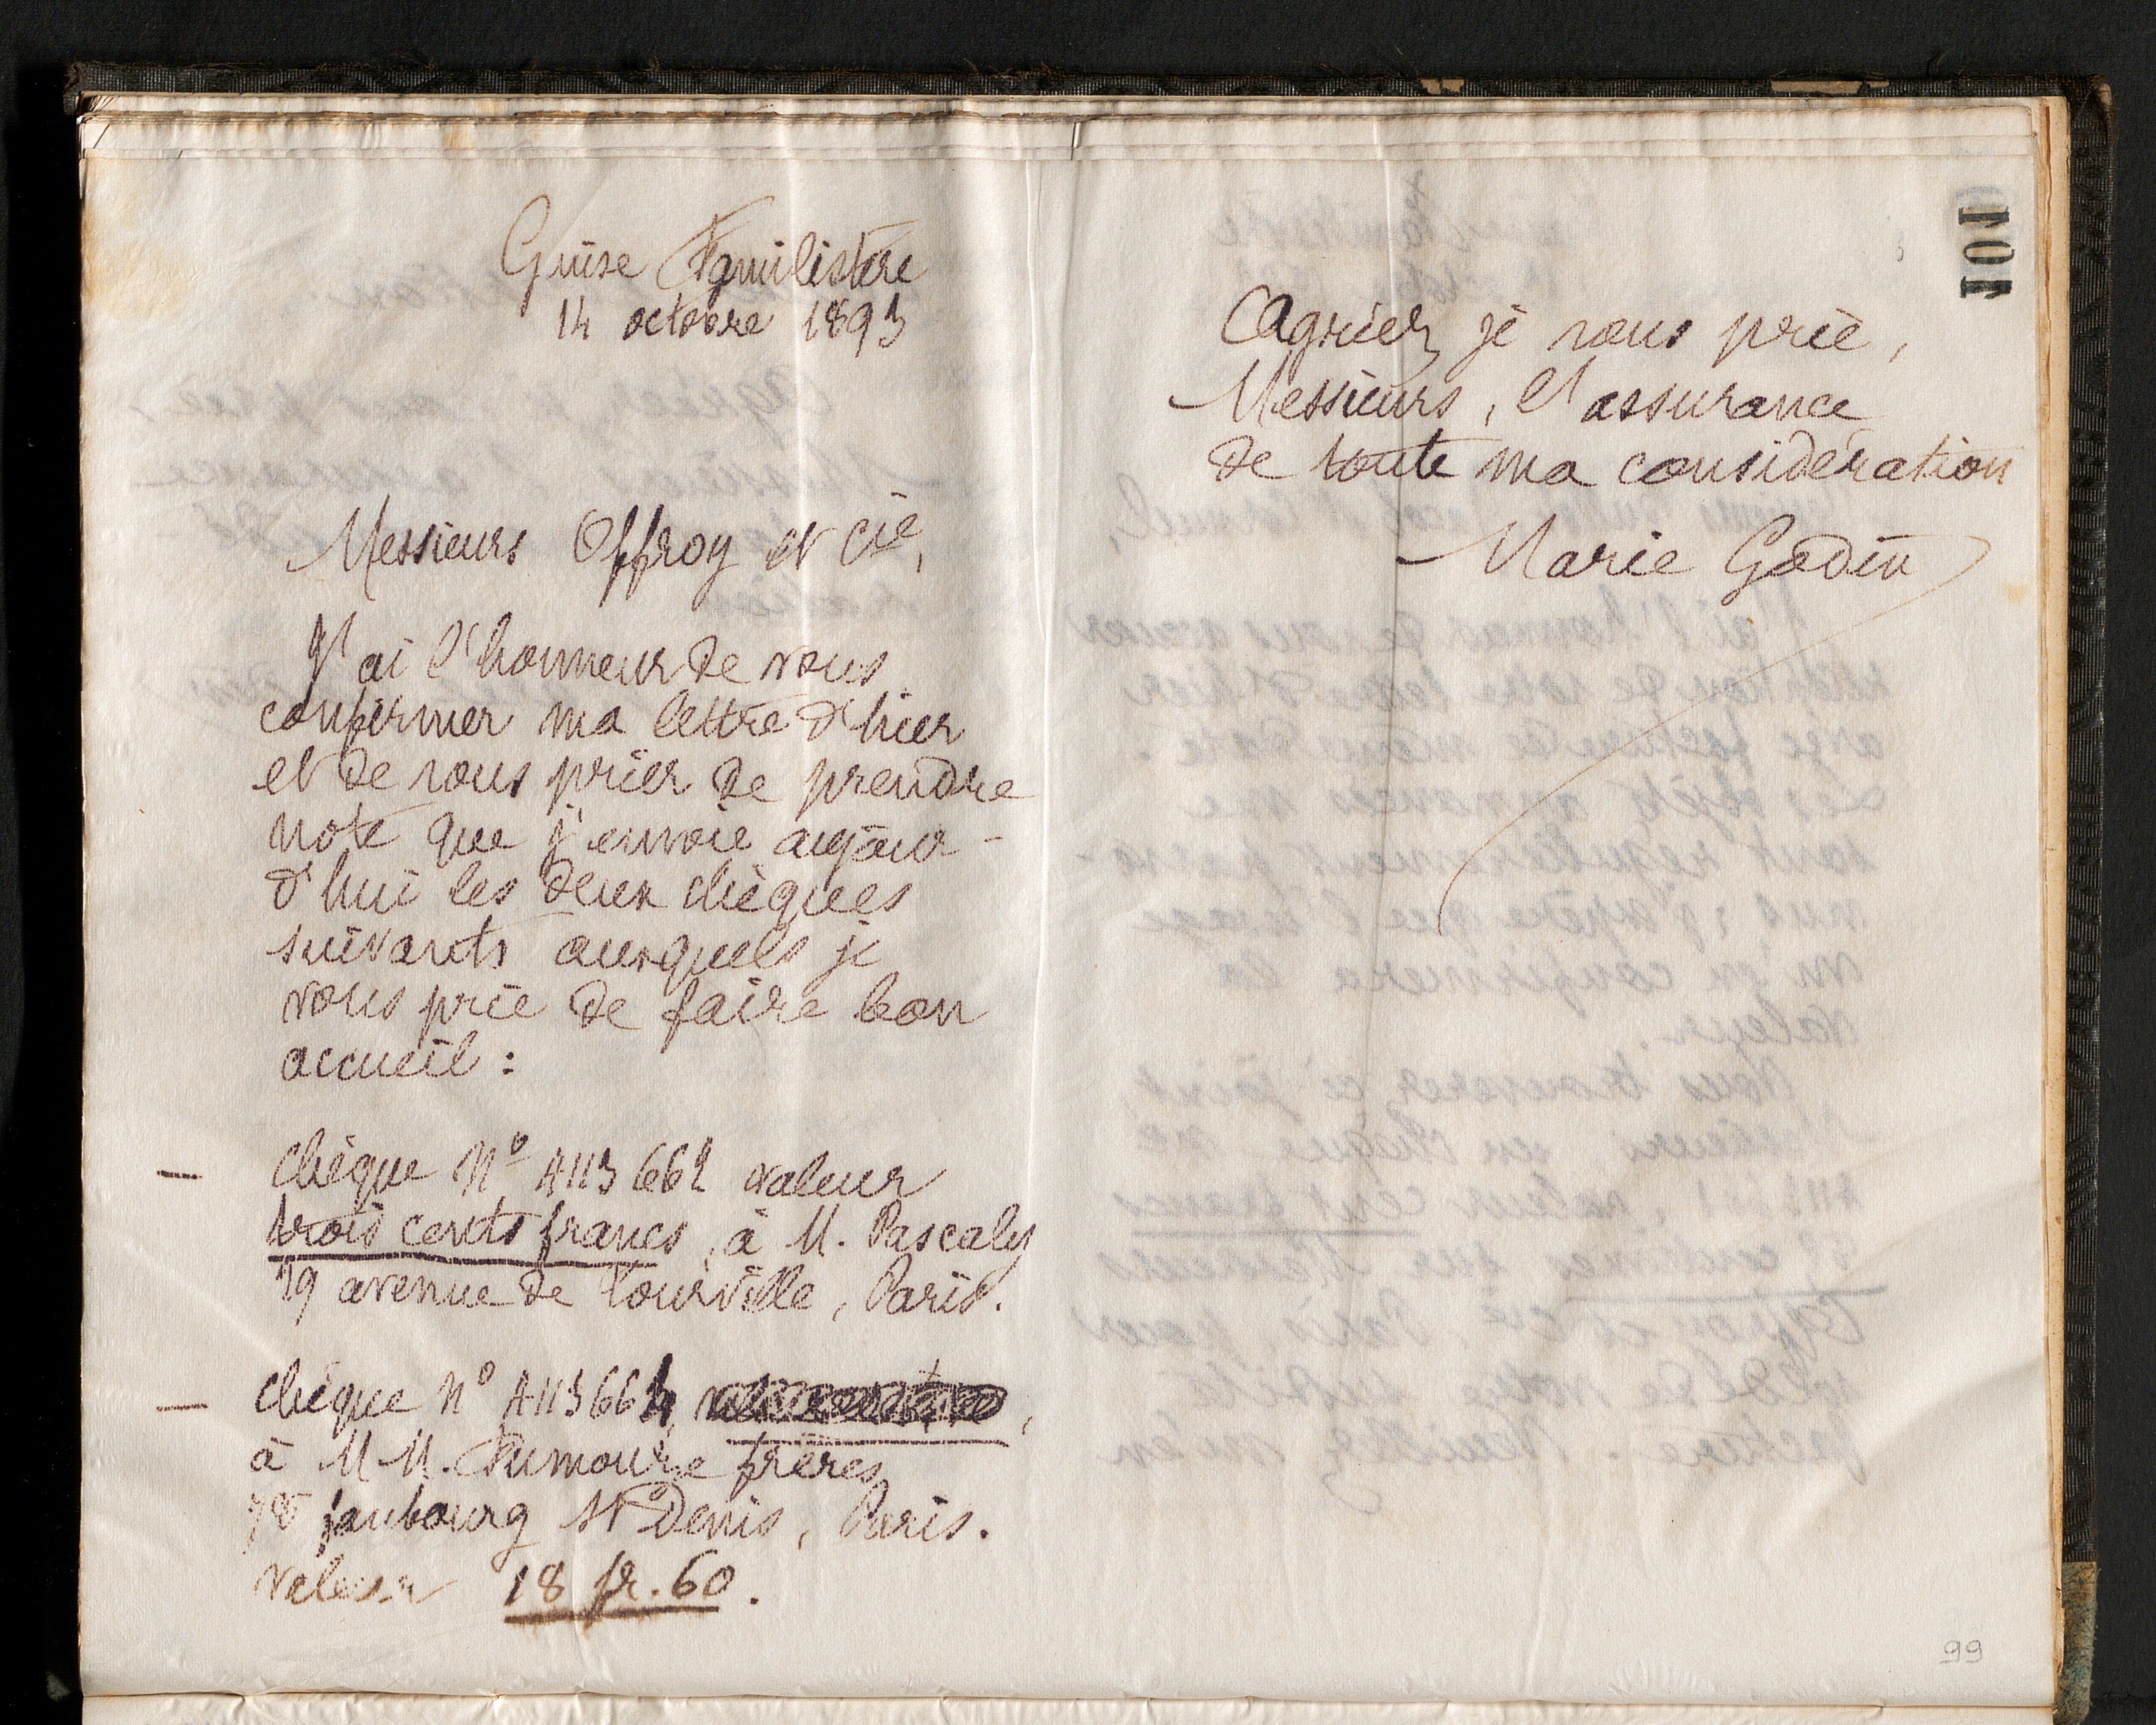 Guise Familistère
14 octobre 1893
Messieurs Offroy et Cie,
J'ai l'honneur de vous
confirmer ma lettre d'hier
et de vous prier de prendre
note que j'envoie aujour-
d'hui les deux chèques
suivants auxquels je
vous prie de faire bon
accueil :
— Chèque No A113662 valeur
trois cents francs, à M. Pascaly
19 avenue de Tourville, Paris.
— Chèque No A113664,
à M M. frères
78 faubourg St Denis, Paris.
valeur 18 fr. 60.
101
Agréez je vous prie,
Messieurs, l'assurance
de toute ma considération
Marie Godin
99